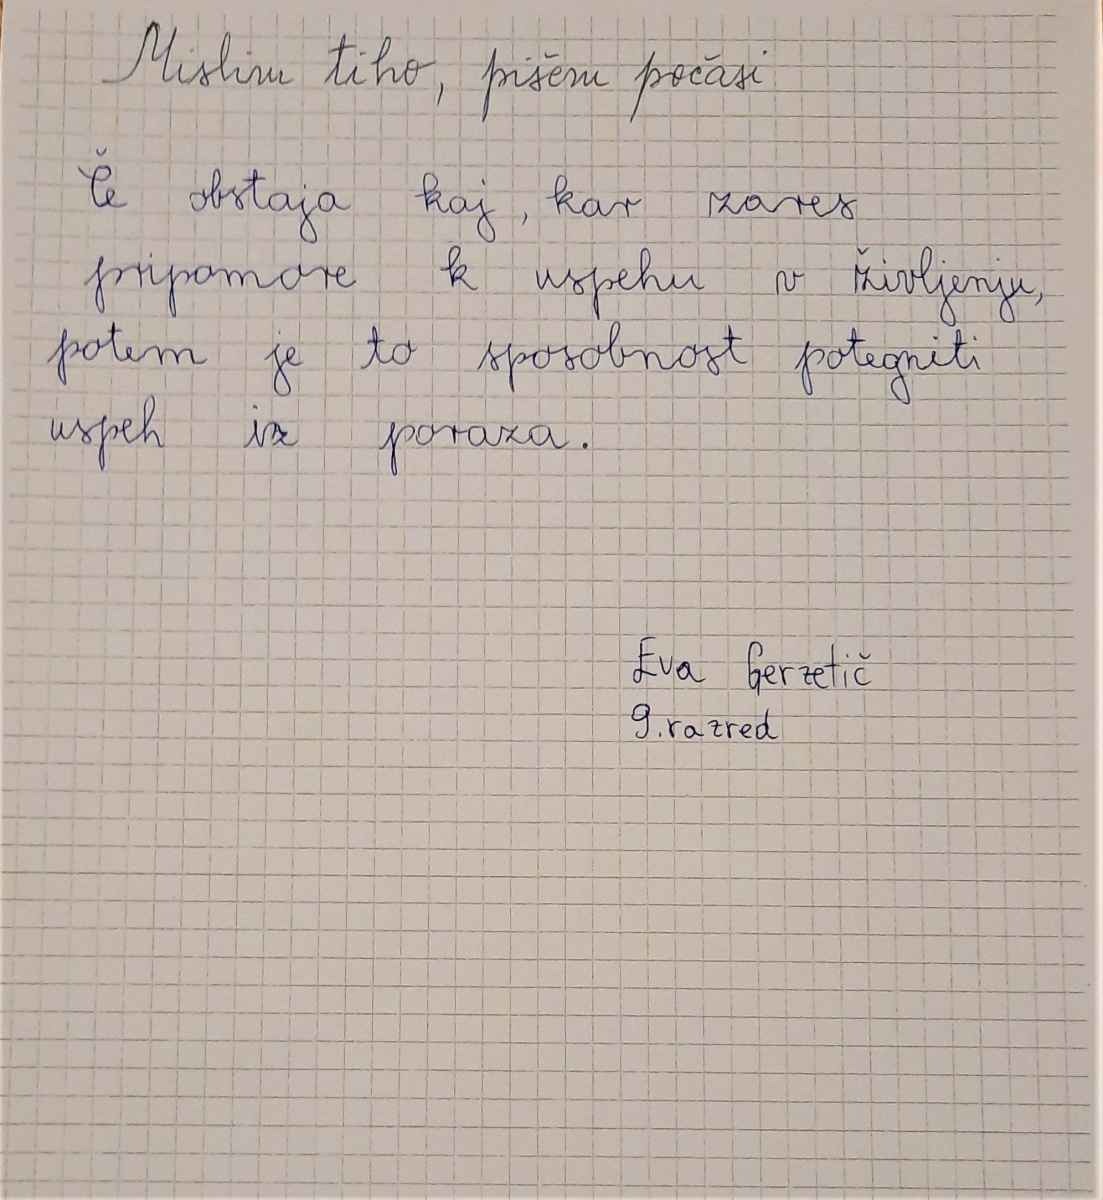 Mislim tiho, pišem počasi
Če obstaja kaj, kar zares
pripomore k uspehu v življenju,
potem je to sposobnost potegniti
uspeh iz poraza.
Eva Gerzetič
9. razred